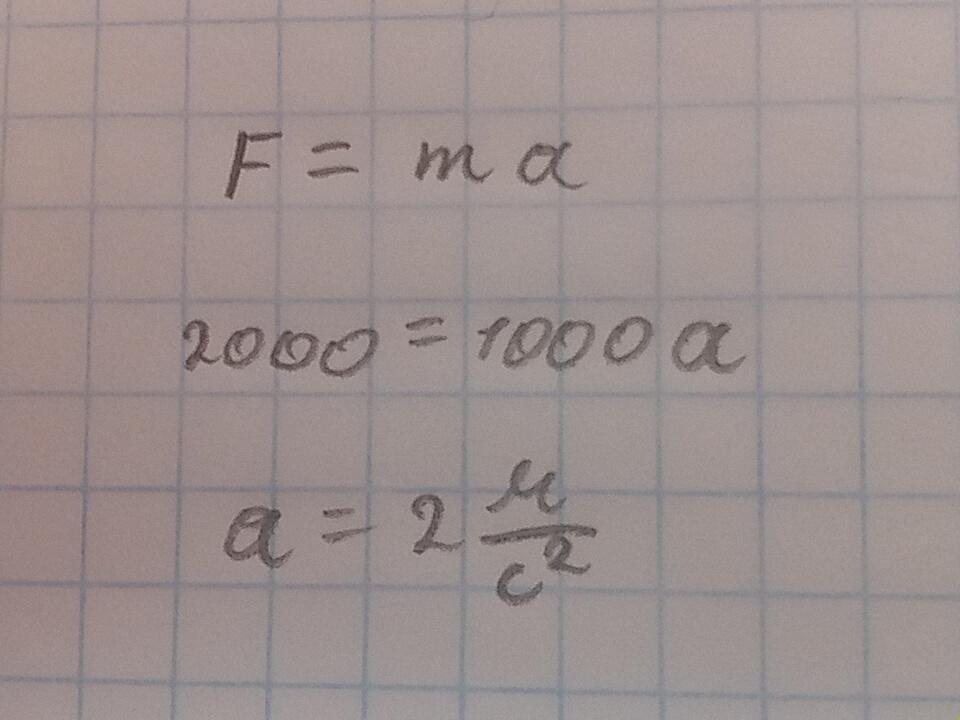 F = ma
2000 = 1000a
a = 2 м/с²